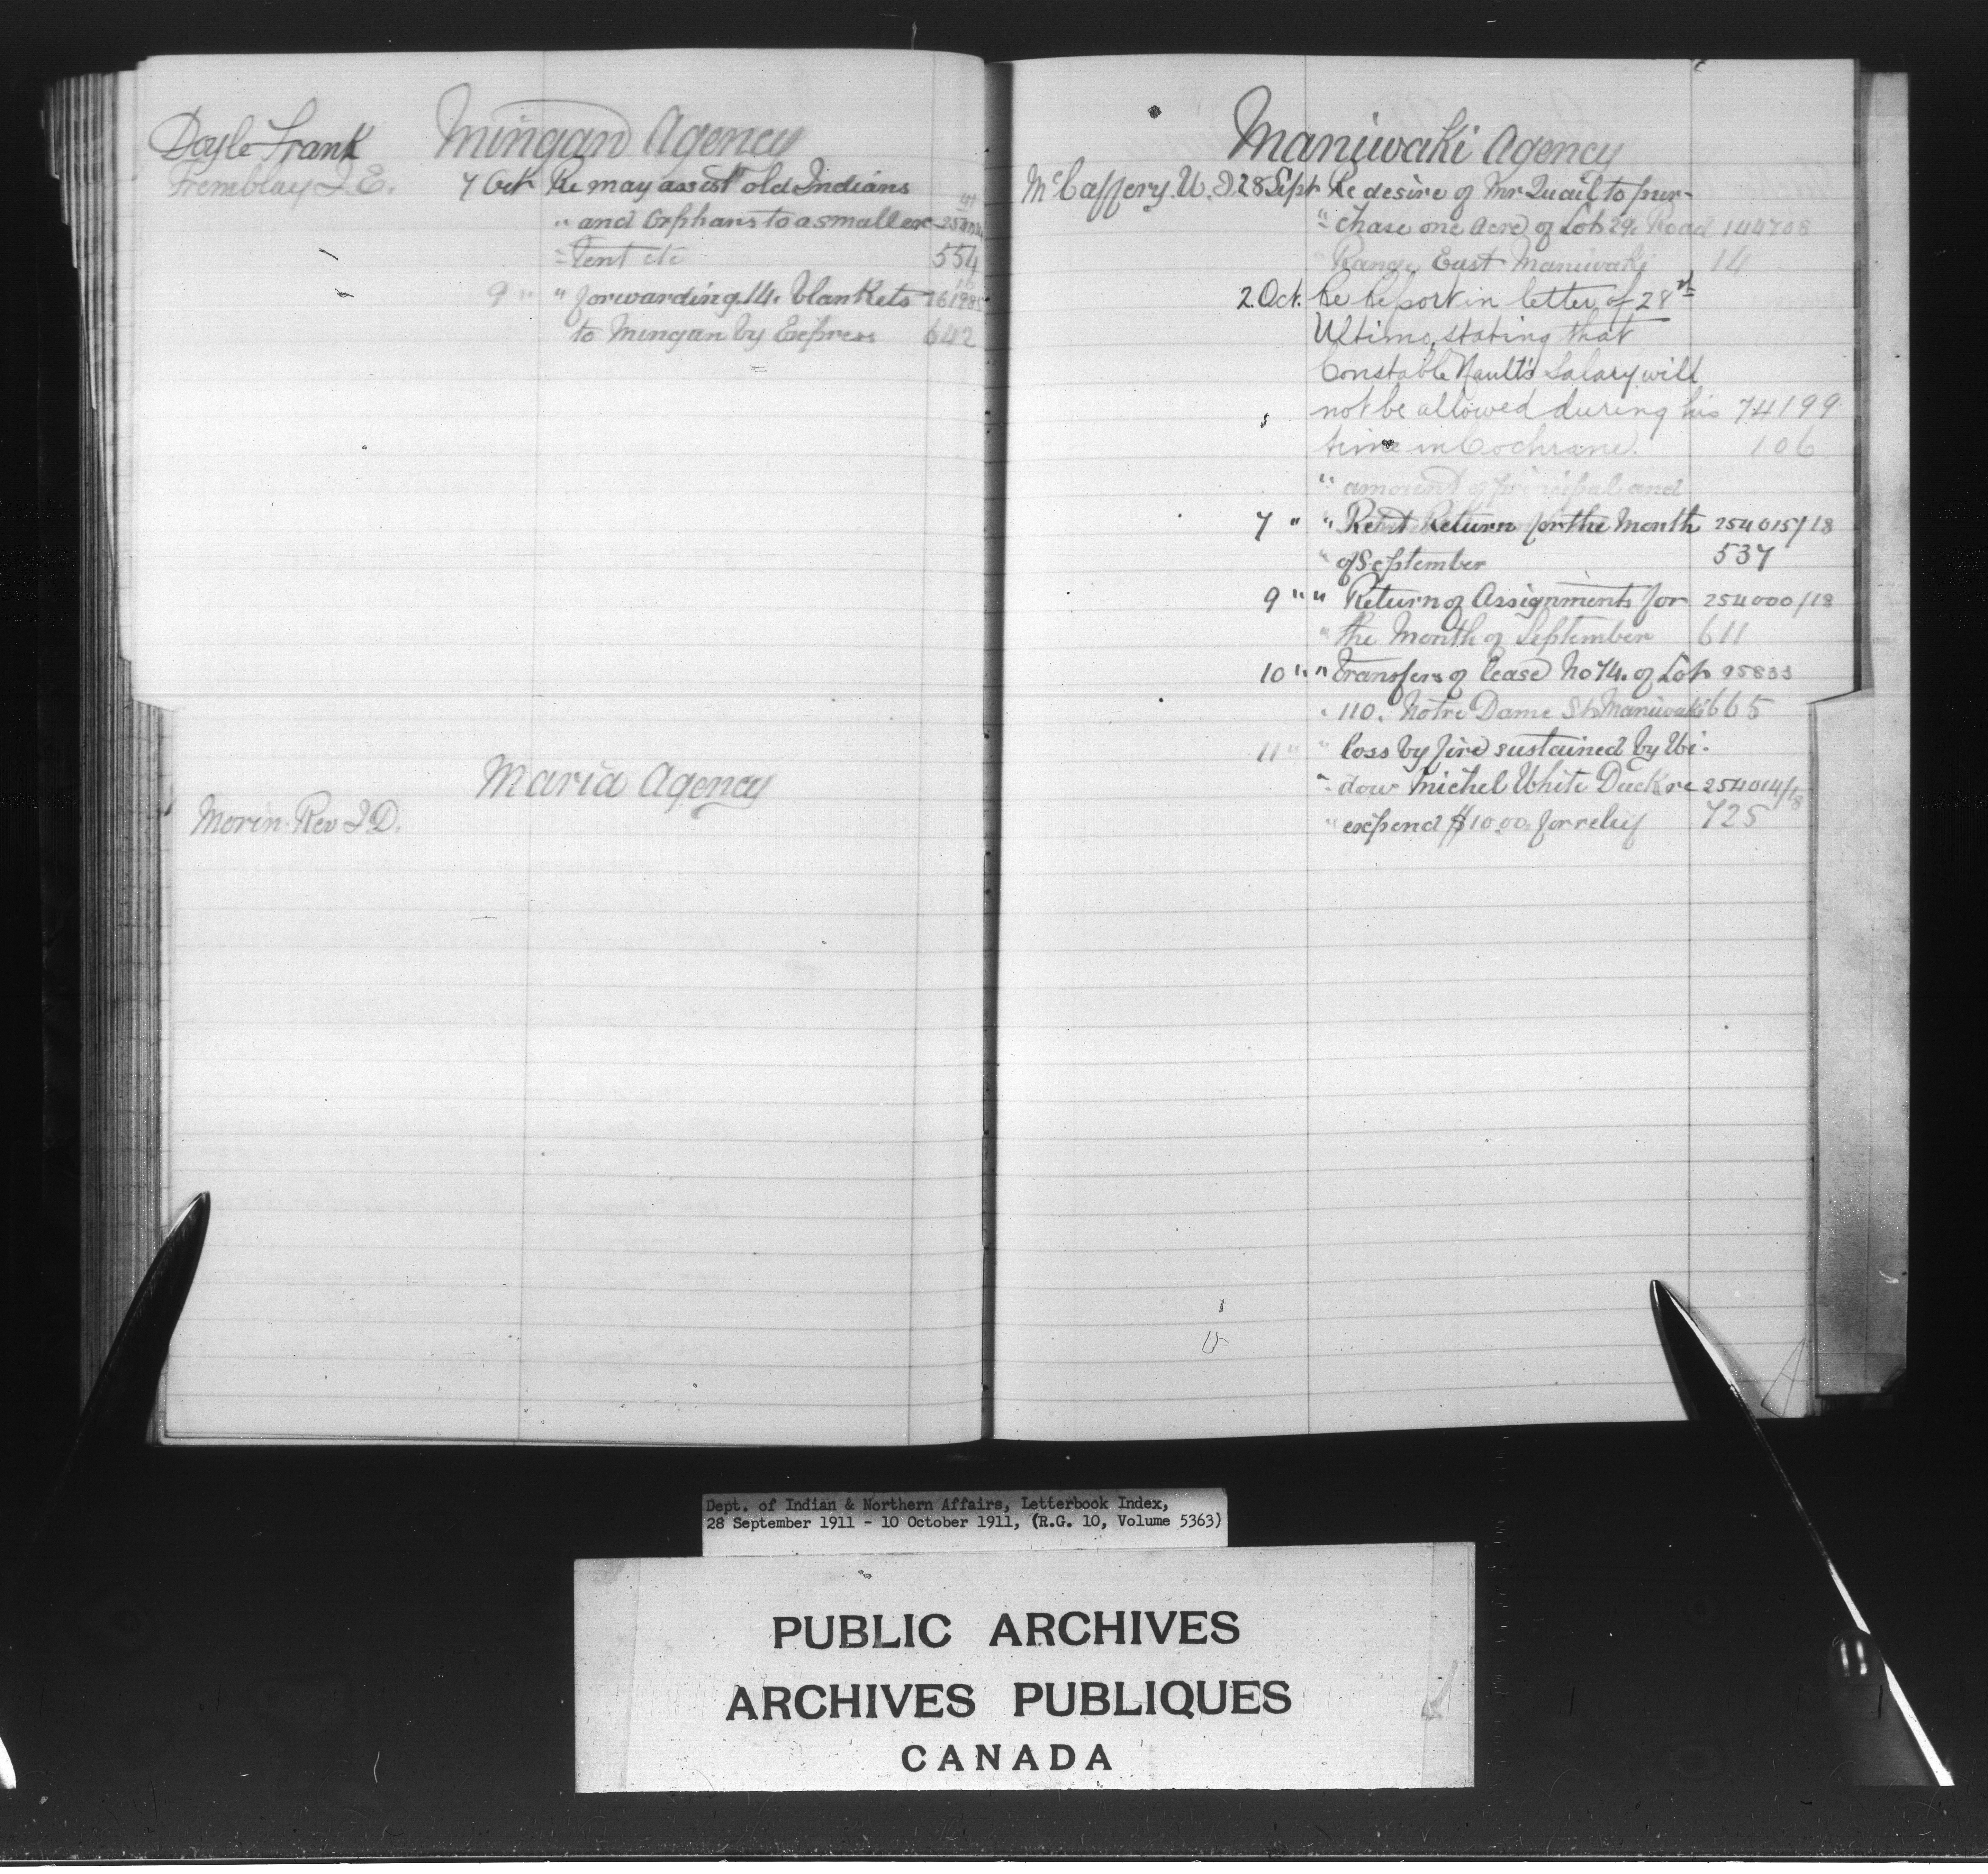 Mingan Agency
Doyle Frank
Tremblay J. E. 7 Oct Re may assist old Indians
" and Orphans to a smaller
" tent etc 554
9 " " forwarding 14. blankets
to Mingan by Express 642
Maria Agency
Morin Rev J. D.
Maniwaki Agency
McCaffery. W. J. 28 Sept Re desire of Mr Quail to pur-
" chase one acre of Lot 29. Road 144708
" Range East Maniwaki 14
2. Oct. Re Report in letter of 28th
Ultimo, stating that
Constable Nault's Salary will
not be allowed during his 74199
time in Cochrane. 106
" amount of principal and
7 " " Rent Return for the Month 254015/18
" of September 537
9 " " Return of Assignments for 254000/18
" the Month of September 611
10 " " Transfers of lease No 74. of Lot 95833
" 110. Notre Dame St Maniwaki 665
11 " " loss by fire sustained by Wi-
" dow Michel White Duck re 254014/18
" expend $10.00. for relief 725
Dept. of Indian & Northern Affairs, Letterbook Index,
28 September 1911 - 10 October 1911, (R.G. 10, Volume 5363)
PUBLIC ARCHIVES
ARCHIVES PUBLIQUES
CANADA